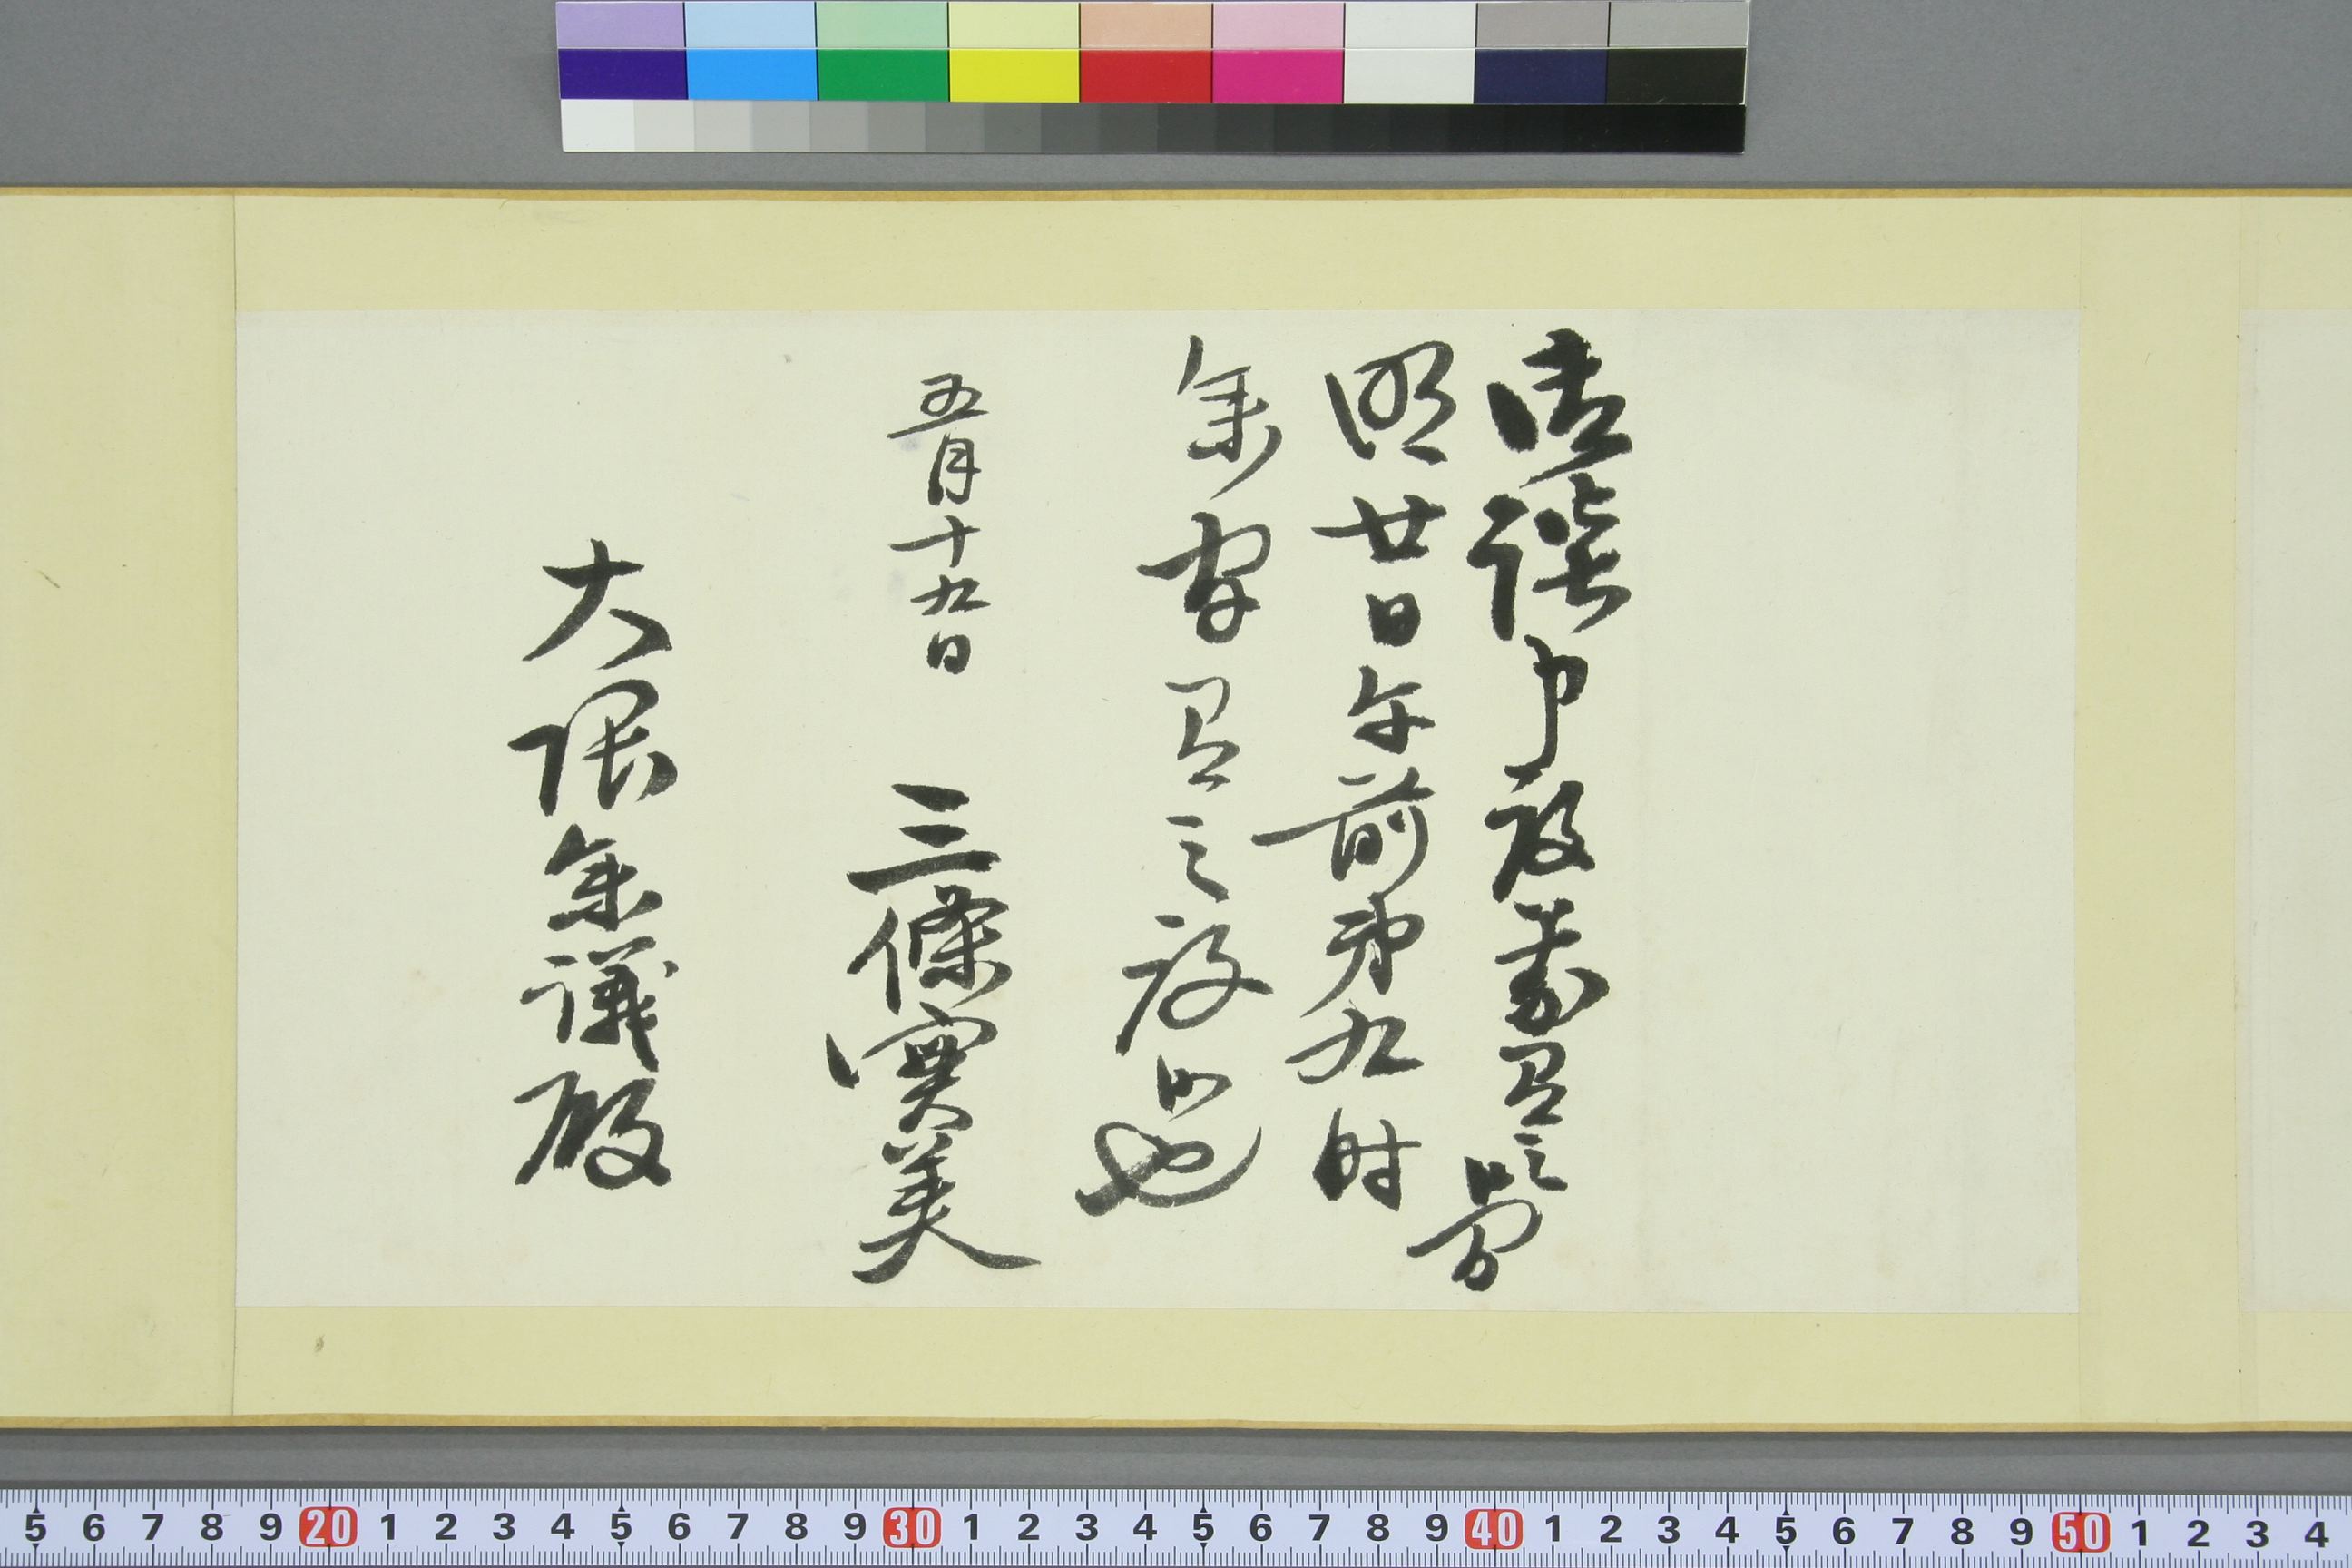 御談申度義有之候間
明廿日午前第九時
参有之度候也
五月十九日 三條實美
大隈参議殿
5 6 7 8 9 20 1 2 3 4 5 6 7 8 9 30 1 2 3 4 5 6 7 8 9 40 1 2 3 4 5 6 7 8 9 50 1 2 3 4